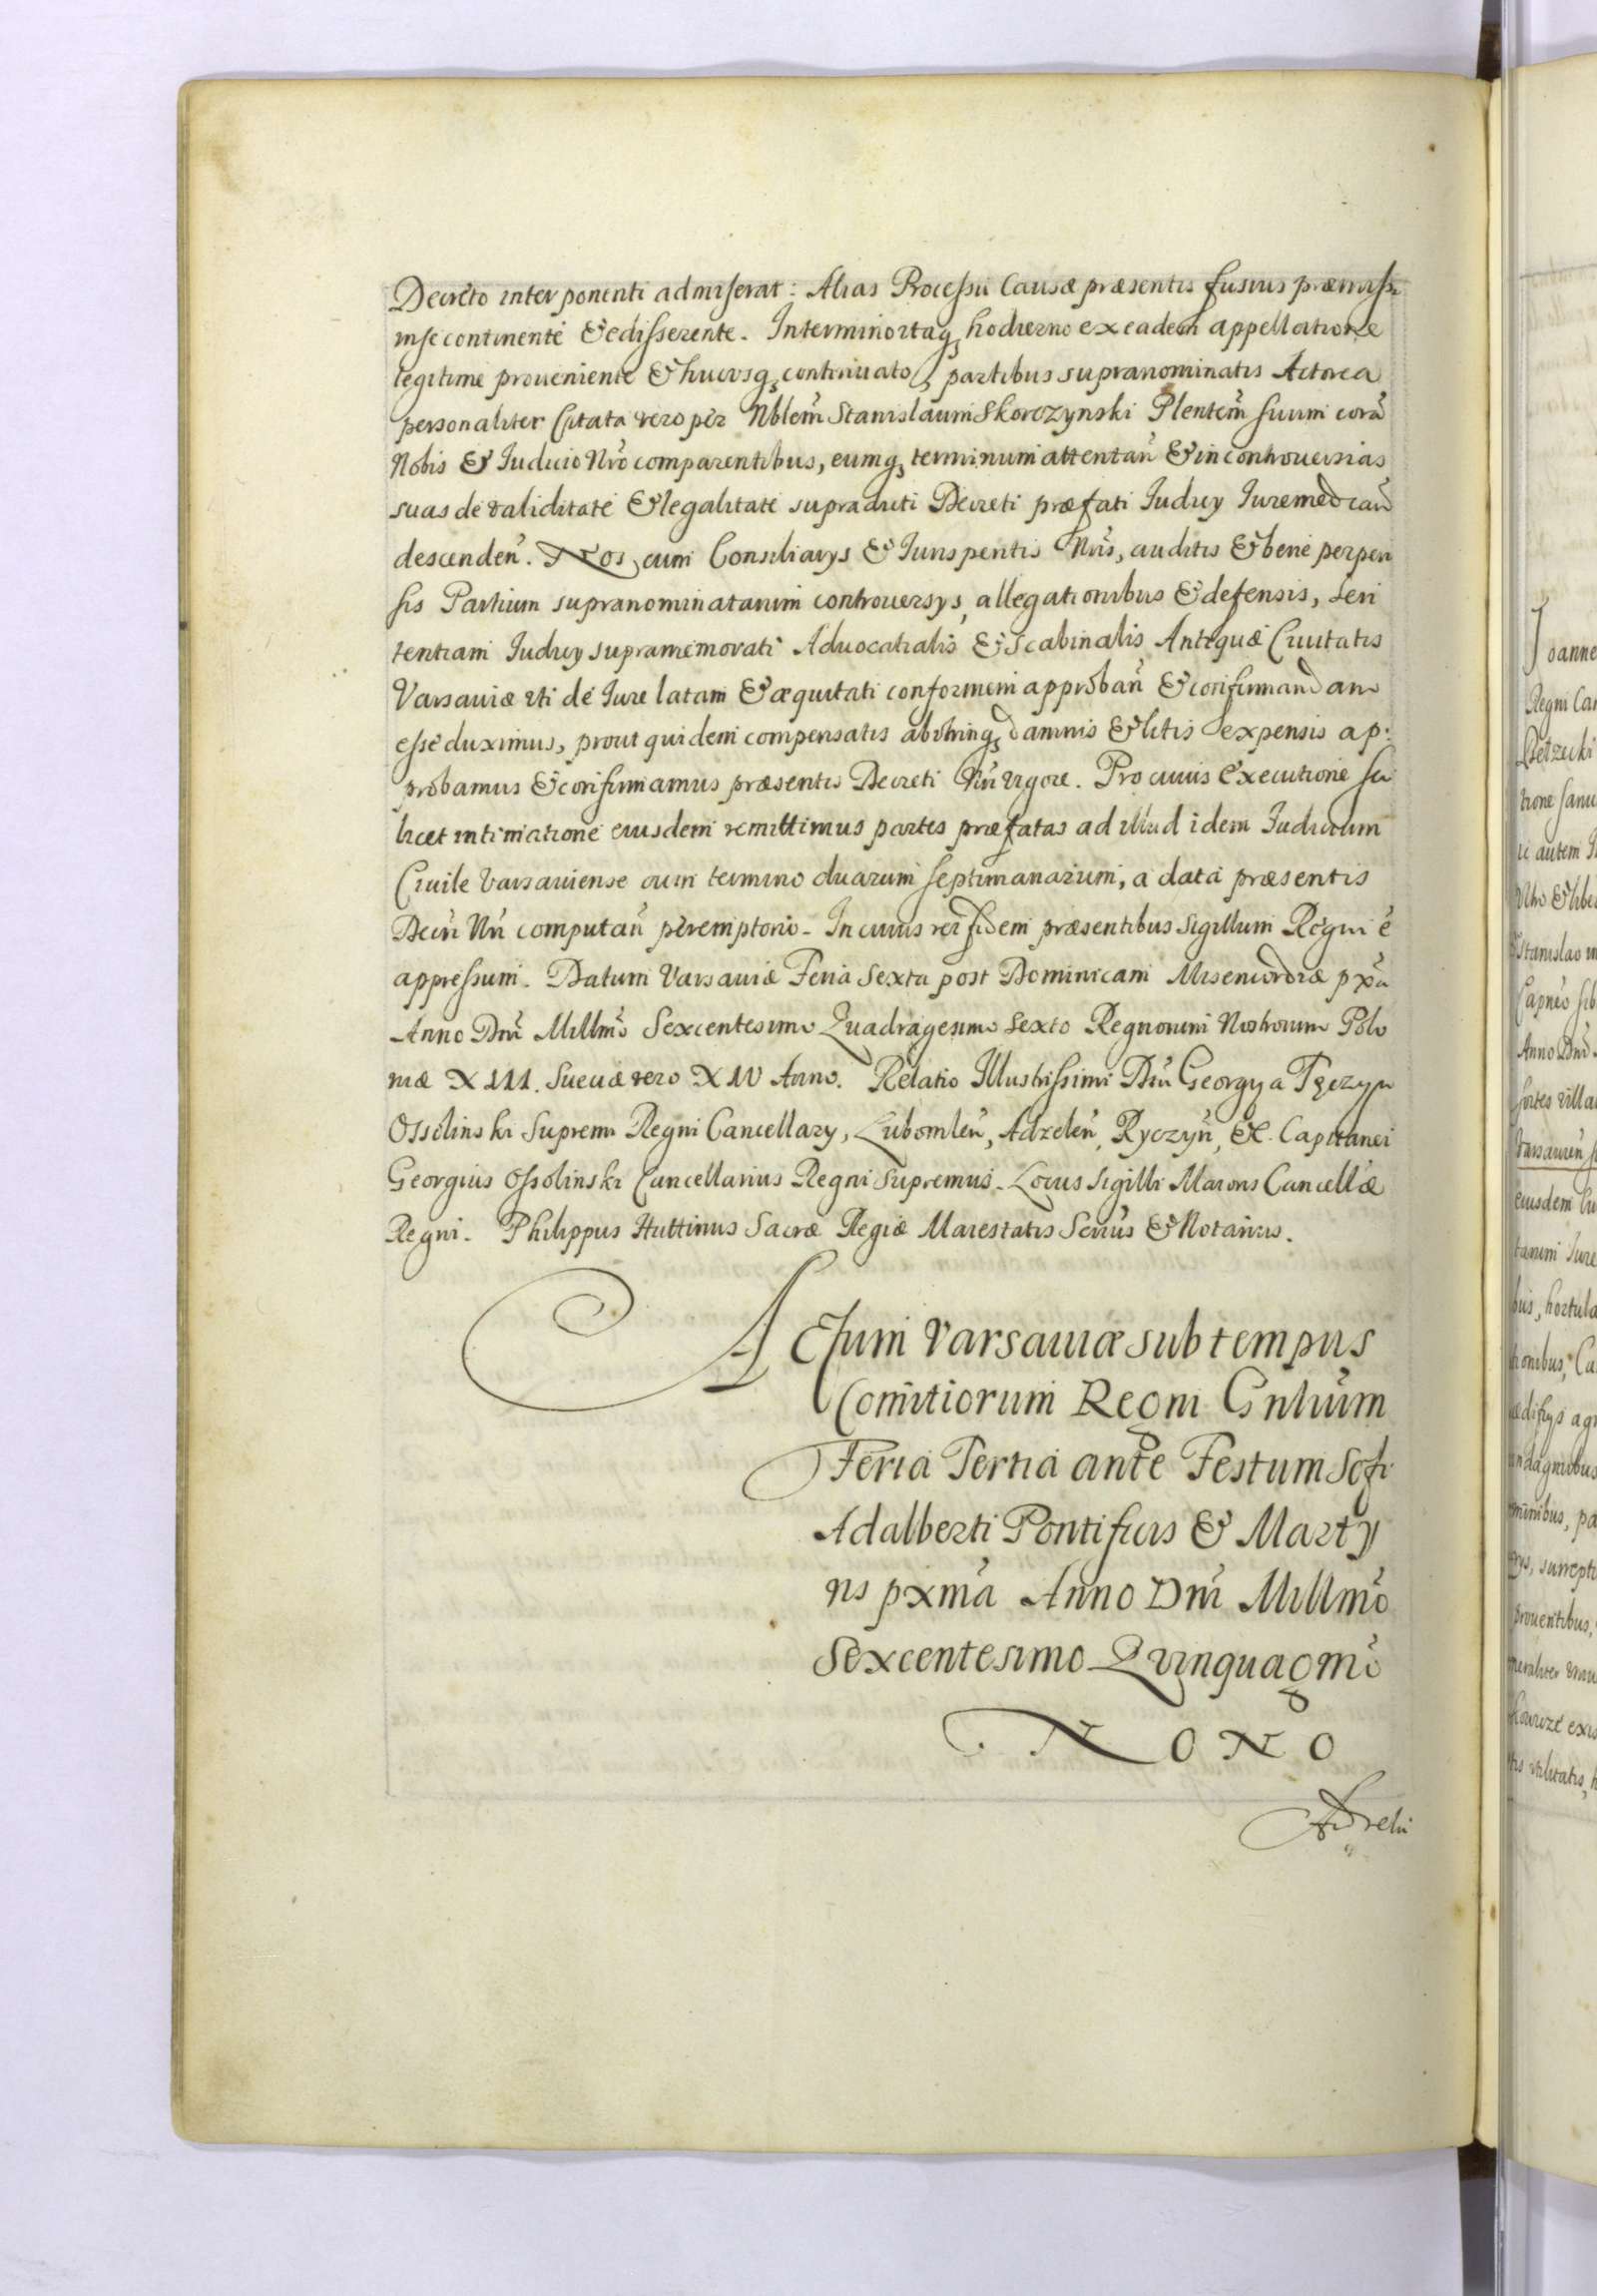 Decreto interponenti admiserat: Alias Processu Causæ præsentis fusius præmissa
in se continente & edisserente. In termino itaq3 hodierno ex eadem appellatione
legitime proueniente & hucusq3 continuato, partibus supranominatis Actorea
personaliter Citata vero per Nblem̃ Stanislaum Skorczynski Plentem̃ suum corã
Nobis & Iudicio Nr̃o comparentibus, eumq3 terminum attentañ & in controuersias
suas de validitate & legalitate supradicti Decreti præfati Iudicy Iuremedcañ
descendeñ. Nos cum Consiliarys & Iurisperitis Nr̃is, auditis & bene perpen
sis Partium supranominatarum controuersys, allegationibus & defensis, Sen
tentiam Iudicy supramemorati Aduocatialis & Scabinalis Antiquæ Ciuitatis
Varsauiæ vti de Iure latam & æquitati conformem approbañ & confirmandam
esse duximus, prout quidem compensatis abvtrinq3 damnis & litis expensis ap:
probamus & confirmamus præsentis Decreti Nr̃i vigore. Pro cuius executione sci
licet intimatione eiusdem remittimus partes præfatas ad illud idem Iudicium
Ciuile Varsauiense cum termino duarum septimanarum, a data præsentis
Decr̃i Nr̃i computañ peremptorio. In cuius rei fidem præsentibus Sigillum Regni ẽ
appressum. Datum Varsauiæ Feria Sexta post Dominicam Misericordiæ pxã
Anno Dñi Millm̃o Sexcentesimo Quadragesimo Sexto Regnorum Nostrorum Polo
niæ XIII. Sueciæ vero XIV Anno. Relatio Illustrissimi Dñi Georgy a Tęczyn
Ossolinski Supremi Regni Cancellary, Lubomleñ, Adzeleñ, Ryczyñ, &c. Capitanei
Georgius Ossolinski Cancellarius Regni Supremus. Locus Sigilli Maioris Cancellæ
Regni. Philippus Huttinus Sacræ Regiæ Maiestatis Secr̃ius & Notarius.
Actum Varsauiæ sub tempus
Com̃itiorum Regni Gnlium̃
Feria Tertia ante Festum Scti
Adalberti Pontificis & Marty
ris pxm̃a Anno Dñi Millm̃o
Sexcentesimo Quinquagm̃o
NONO